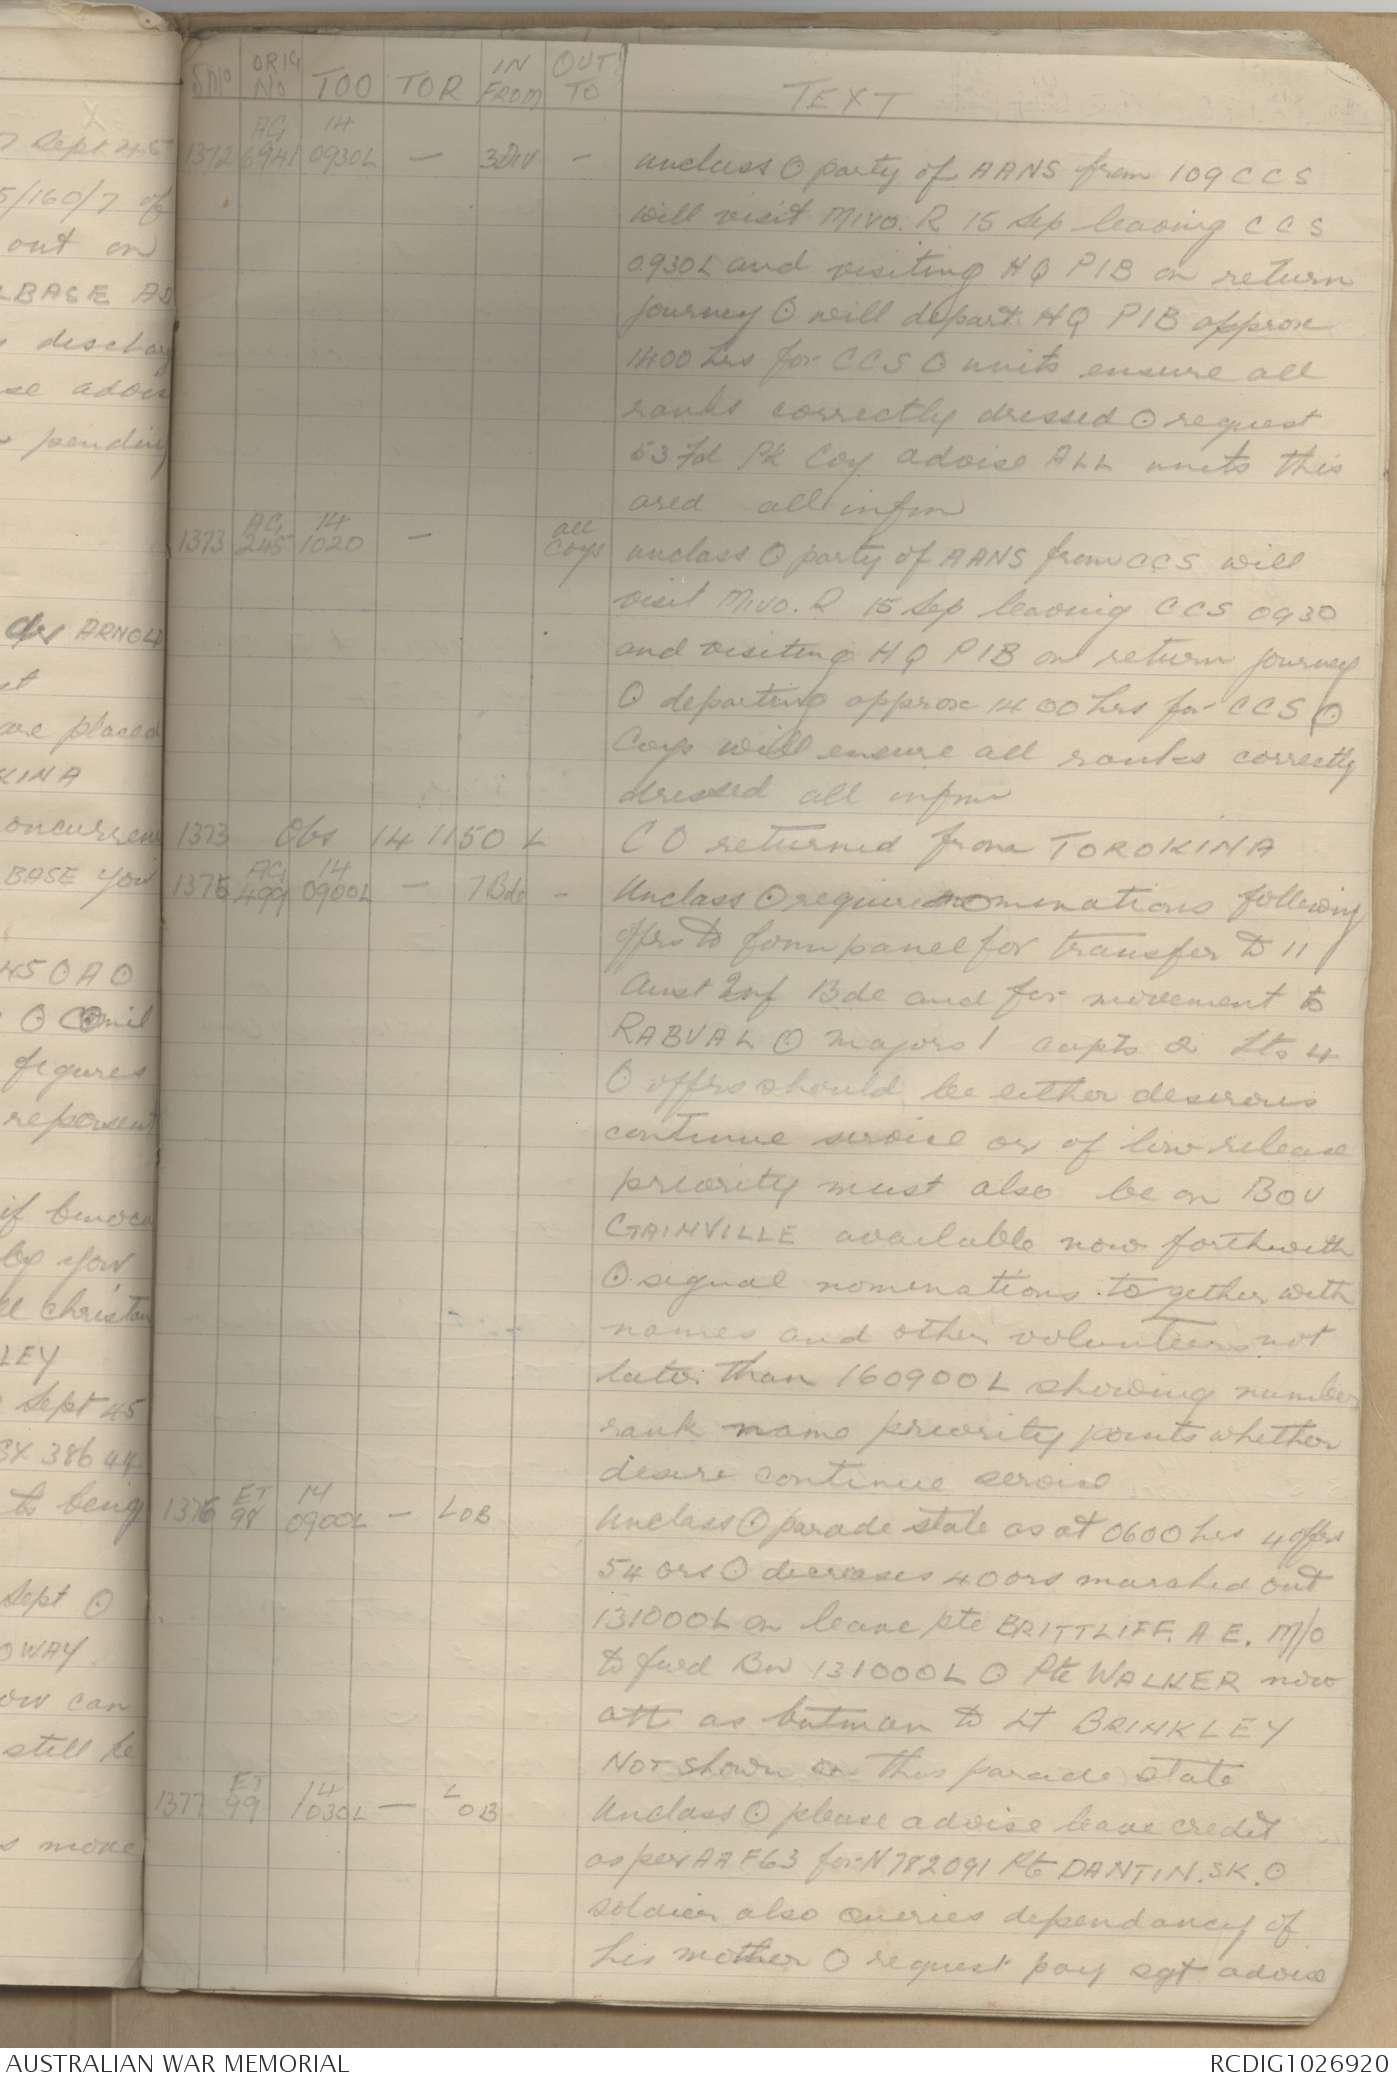 7 Sept 45
5/160/7 of
out on
LBASE AD
discharg
se advis
pending
ARNOLD
st
are placed
KINA
oncurren
BASE you
45 O A O
O Comil
figures
represent
if
by you
ll christian
LEY
Sept 45
SX 38644
to being
Sept O
OWAY
ow can
still be
s more
SNO ORIG No TOO TOR IN FROM OUT TO TEXT
1372 AG 6941 14 0930L — 3DIV — unclass O party of AANS from 109 CCS
will visit MIVO. R 15 Sep leaving CCS
0930L and visiting HQ PIB on return
journey O will depart HQ PIB approx
1400 hrs for CCS O units ensure all
ranks correctly dressed O request
53 Fd Pk Coy advise ALL units this
area all infm
1373 AG 245 14 1020 — all coys unclass O party of AANS from CCS will
visit MIVO. R 15 Sep leaving CCS 0930
and visiting HQ PIB on return journey
O departing approx 1400 hrs for CCS O
Coys will ensure all ranks correctly
dressed all infm
1373 Obs 14 1150 L CO returned from TOROKINA
1375 AG 499 14 0900L — 7 Bde — Unclass O require nominations following
offrs to form panel for transfer to 11
Aust Inf Bde and for movement to
RABUAL O majors 1 capts 2 Lts 4
O offrs should be either desirous
continue service or of low release
priority must also be on BOU
GAINVILLE available now forthwith
O signal nominations together with
names and other volunteers not
later than 160900L showing number
rank name priority points whether
desire continue service
1376 ET 98 14 0900L — LOB Unclass O parade state as at 0600 hrs 4 offrs
54 ors O decreases 40 ors marched out
131000L on leave pte BRITTLIFF. A E. M/O
to fwd Bn 131000L O Pte WALKER now
att as batman to Lt BRINKLEY
NOT shown on this parade state
1377 ET 99 14 1030L — LOB Unclass O please advise leave credit
as per AAF63 for N782091 Pte DANTIN. SK. O
soldier also queries dependancy of
his mother O request pay sgt advise
AUSTRALIAN WAR MEMORIAL RCDIG1026920